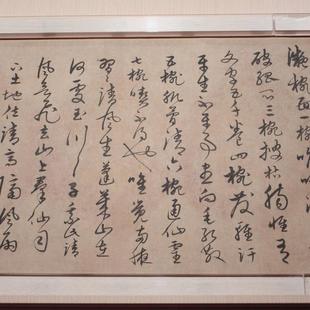 凝椀面一椀喉吻潤
破孤悶三椀搜枯腸惟有
文字五千卷四椀發輕汗
平生不平事盡向毛孔散
五椀肌骨清六椀通仙靈
七椀喫不得也唯覺兩腋
習習清風生蓬萊山在
何處玉川子乘此清
風欲去山上群仙司
下土地位清高隔風雨